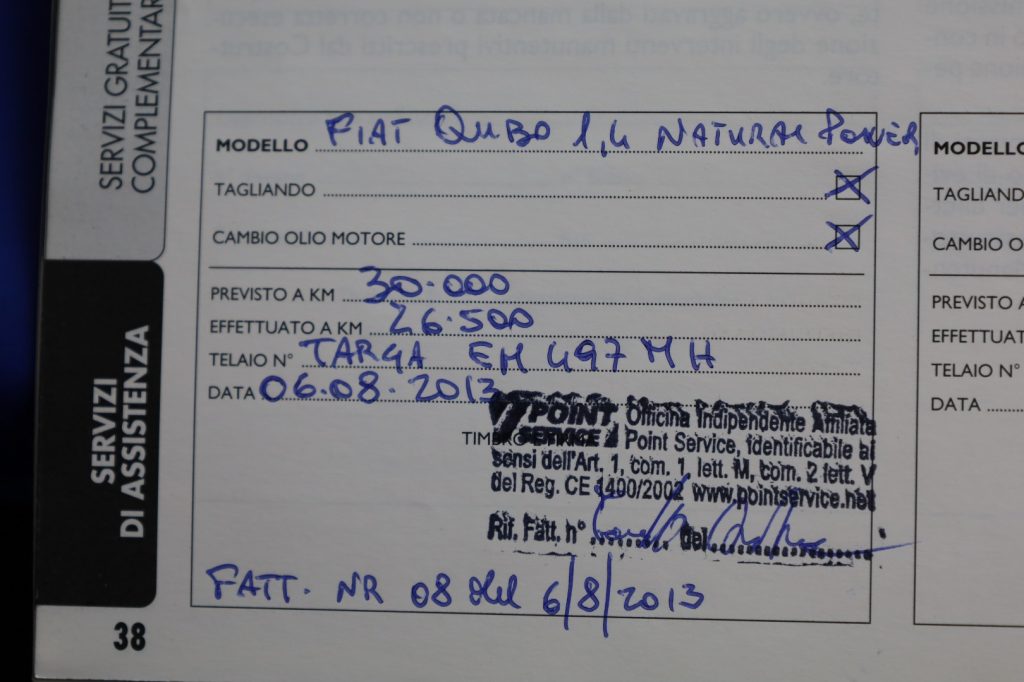 SERVIZI GRATUIT
COMPLEMENTAR
SERVIZI
DI ASSISTENZA
38
MODELLO FIAT QUBO 1,4 NATURAL POWER
TAGLIANDO
CAMBIO OLIO MOTORE
PREVISTO A KM 30.000
EFFETTUATO A KM 26.500
TELAIO N° TARGA EH 497 MH
DATA 06.08.2013
TIMBRO
POINT SERVICE
Officina Indipendente Affiliata
Point Service, identificabile ai
sensi dell'Art. 1, com. 1 lett. M, com. 2 lett. V
del Reg. CE 1400/2002 www.pointservice.net
Rif. Fatt. n° del
FATT. NR 08 del 6/8/2013
MODELLO
TAGLIAND
CAMBIO O
PREVISTO A
EFFETTUAT
TELAIO N°
DATA